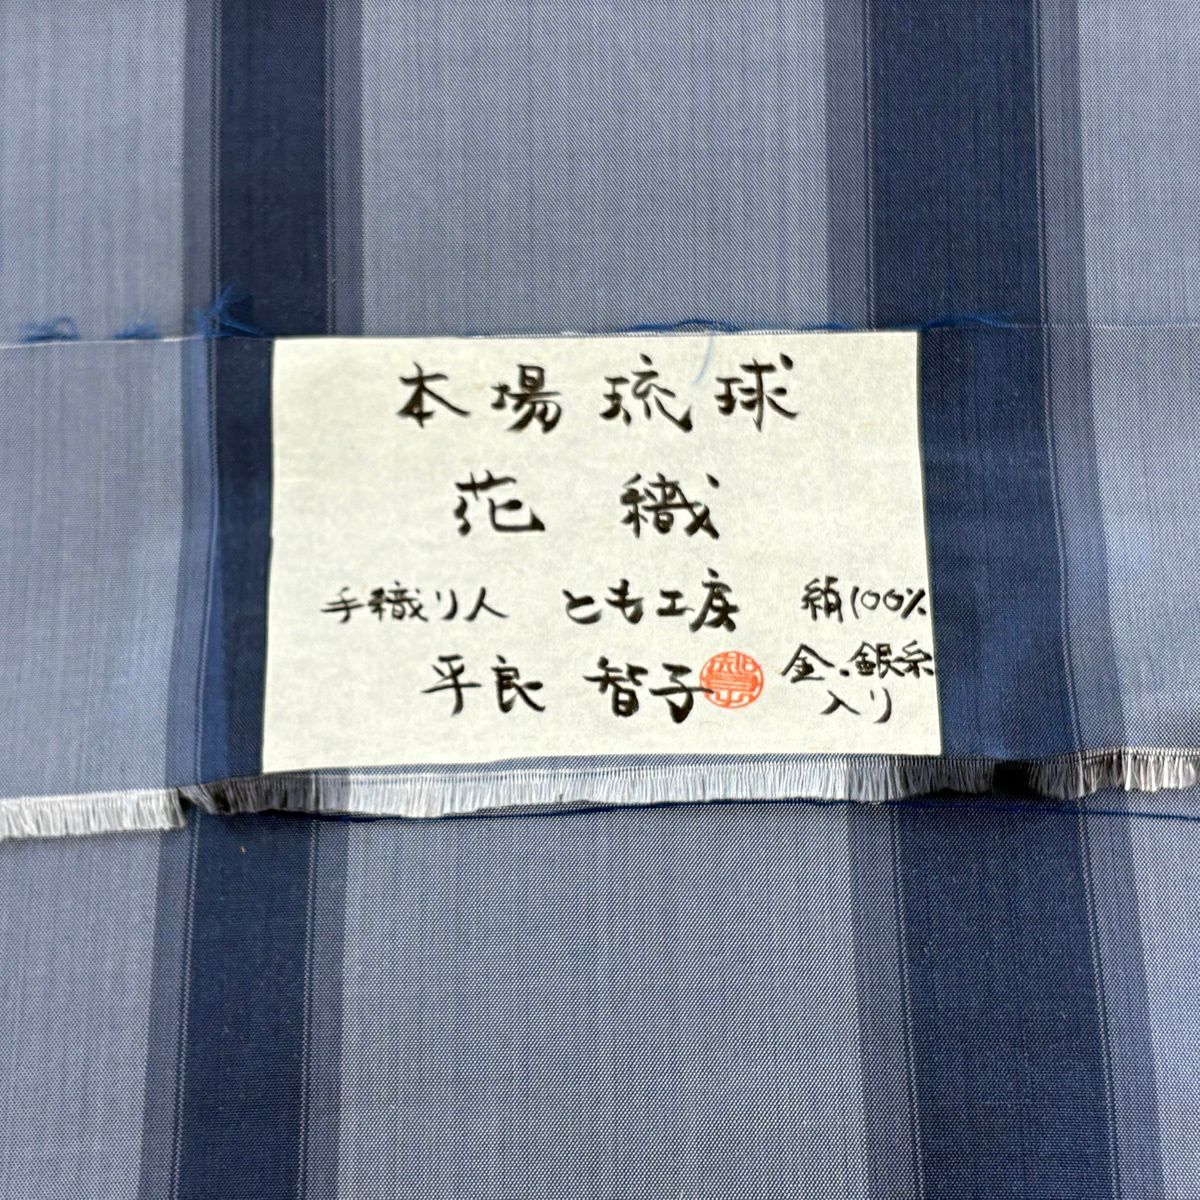 本場琉球
花織
手織り人 とも工房 絹100%
平良 智子 金.銀糸
入り